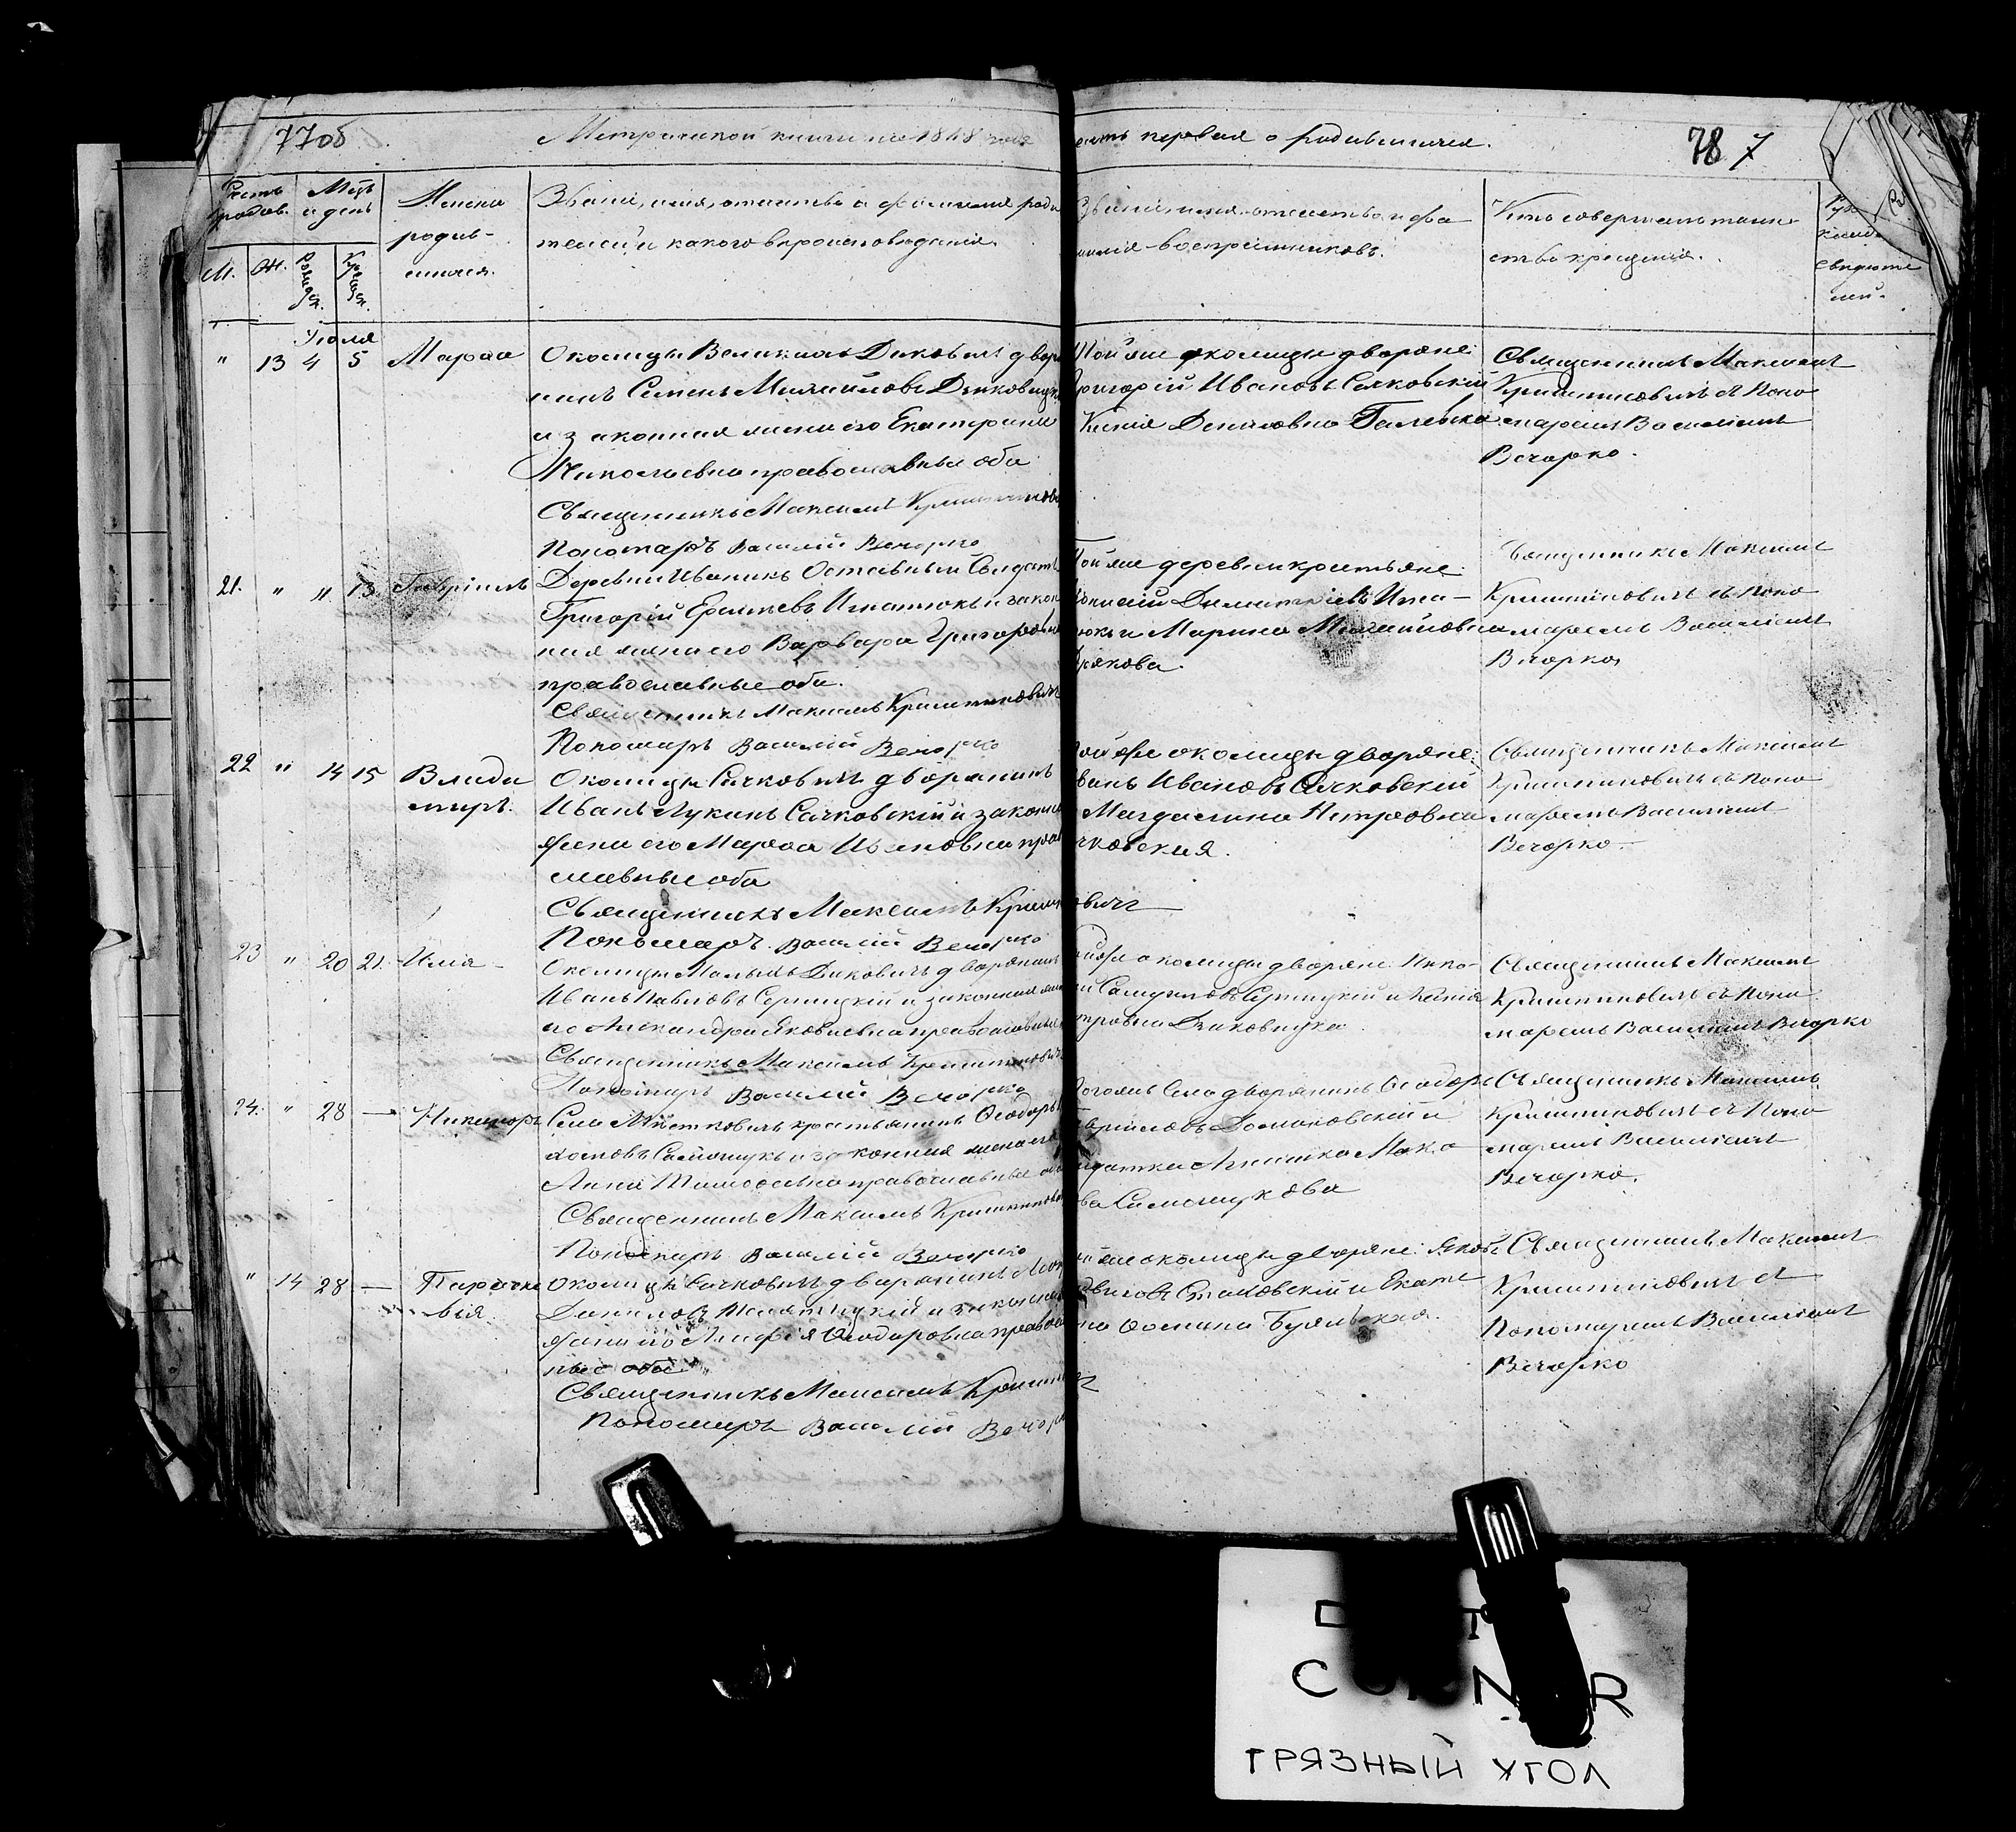 77об
Метрической книги на 1848 года
часть первая о родившихся.
78 7
Счетъ родив.
Мѣсяцъ и день
Имена родив-
шихся.
Званіе, имя, отчество и фамилія роди
телей, и какого вѣроисповѣданія.
Званіе, имя, отчество и фа
милія воспріемниковъ.
Кто совершалъ таин
ство крещенія.
М. Ж. Рожден. Крещен.
Іюля
" 13 4 5 Марѳа
Околицы Великихъ Диковичъ дворя
нинъ Семенъ Михайловъ Дзиковицкій
и законная жена его Екатерина
Николаевна православные оба
Священникъ Максимъ Криштиновичъ
Пономарь Василій Вечорко
Той же околицы дворяне:
Григорій Ивановъ Сачковскій
Ксенія Даниловна
Священникъ Максимъ
Криштиновичъ съ Поно
маремъ Василіемъ
Вечорко.
21. " " 13 Гавріилъ
Деревни Иваникъ Отставный Солдатъ
Григорій Ермиевъ Игнатюкъ и закон
ная жена его Варвара Григорьевна
православные оба.
Священникъ Максимъ Криштиновичъ
Пономарь Василій Вечорко
Той же деревни крестьяне:
Діонисій Димитріевъ Игна-
тюкъ и Марина Михайловна
Священникъ Максимъ
Криштиновичъ съ Поно
маремъ Василіемъ
Вечорко
22 " 14 15 Влади
миръ.
Околицы Сачковичъ дворянинъ
Иванъ Лукинъ Сачковскій и законная
жена его Марѳа Ивановна право
славные оба
Священникъ Максимъ Криштиновичъ
Пономарь Василій Вечорко
Той же околицы дворяне:
Иванъ Ивановъ Сачковскій
Магдалина Петровна
Сачковская.
Священникъ Максимъ
Криштиновичъ съ Поно
маремъ Василіемъ
Вечорко.
23 " 20 21. Илія
Околицы Малыхъ Диковичъ дворянинъ
Иванъ Павловъ Сергицкій и законная жена
его Александра Яковлевна православные
Священникъ Максимъ Криштиновичъ
Пономарь Василій Вечорко
Той же околицы дворяне: Нико-
лай Самуиловъ Сергицкій и Ксенія
Петровна Дзиковицка.
Священникъ Максимъ
Криштиновичъ съ Поно
маремъ Василіемъ Вечорко
24. " 28 — Никаноръ
Села Мѣстковичъ крестьянинъ Ѳеодоръ
и законная жена его
Анна Тимоѳеевна православные оба
Священникъ Максимъ Криштиновичъ
Пономарь Василій Вечорко
Тогожъ Села дворянинъ Ѳеодоръ
Гавриловъ Домановскій и
солдатка
Священникъ Максимъ
Криштиновичъ съ Поно
маремъ Василіемъ
Вечорко.
" 14 28 — Параске
вія.
Околицы Сачковичъ дворянинъ
Даниловъ и законная
жена его Ѳеодоровна православ
ные оба.
Священникъ Максимъ Криштиновичъ
Пономарь Василій Вечорко
Той же околицы дворяне: Яковъ
и Екате
рина
Священникъ Максимъ
Криштиновичъ съ
Пономаремъ Василіемъ
Вечорко
ГРЯЗНЫЙ УГОЛ